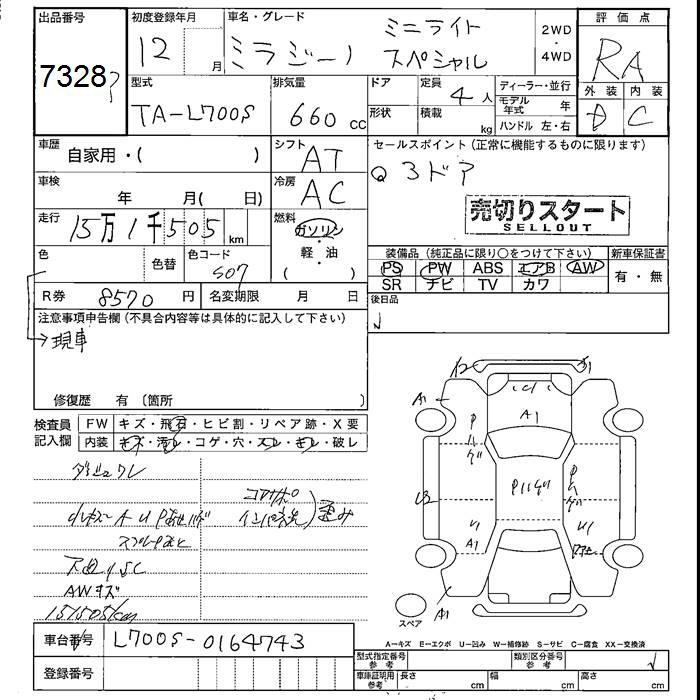 出品番号 初度登録年月 車名・グレード 評価点
7328 12 月 ミラジーノ ミニライト スペシャル 2WD ・ 4WD RA
外装 内装
型式 排気量 ドア 定員 4 人 ディーラー・並行 D C
TA-L700S 660 cc 形状 積載 kg モデル年式 年
ハンドル 左・右
車歴 自家用・( ) シフト AT セールスポイント(正常に機能するものに限ります)
車検 年 月( 日) 冷房 AC 3ドア
走行 15万1千505 km 燃料 ガソリン 売切りスタート
SELLOUT
軽・油
( )
色 色替 色コード S07 装備品(純正品に限り○をつけて下さい) 新車保証書
PS PW ABS エアB AW 有・無
SR ナビ TV カワ
R券 8570 円 名変期限 月 日 後日品
注意事項申告欄(不具合内容等は具体的に記入して下さい)
現車
修復歴 有(箇所 )
検査員記入欄 FW キズ・飛石・ヒビ割・リペア跡・X要
内装 キズ・汚れ・コゲ・穴・スレ・キレ・破レ
12
A1 A1
P ハゲ Pハゲ P ハゲ
U2
A1
A1
AWキズ
151505km
スペア
A-キズ E-エクボ U-凹み W-補修跡 S-サビ C-腐食 XX-交換済
車台番号 L700S-0164743
登録番号
型式指定番号 参考 類別区分番号 参考
車庫証明用 参考 長さ cm 幅 cm 高さ cm